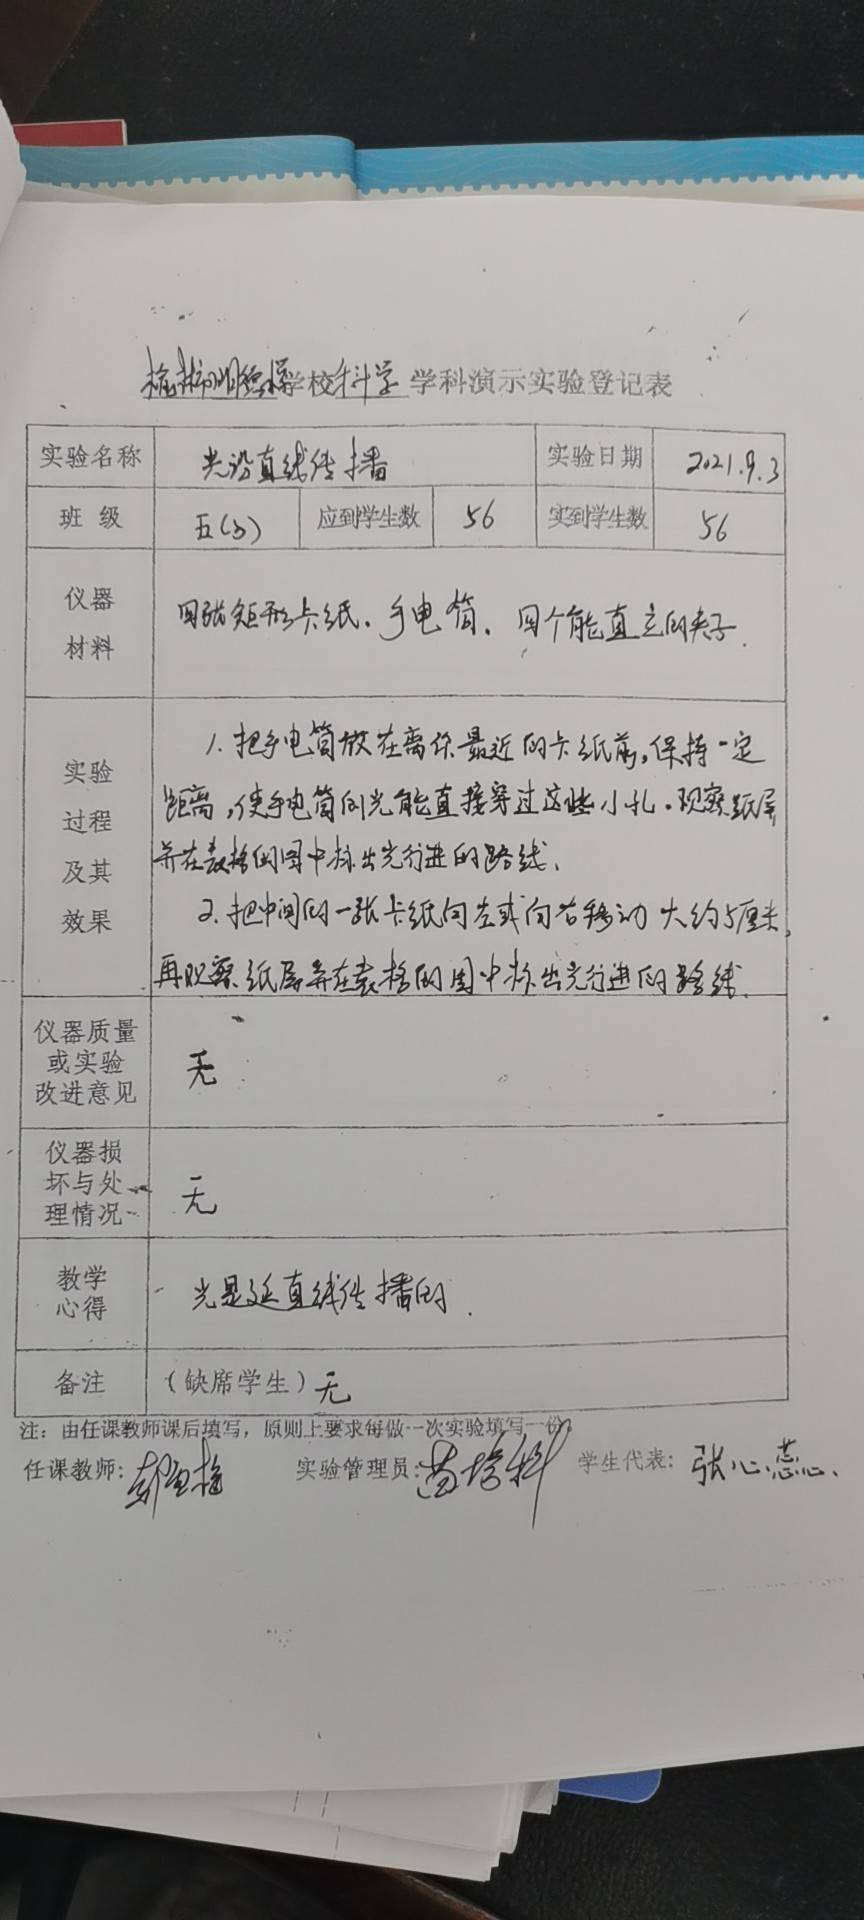 学校科学学科演示实验登记表
实验名称 光沿直线传播 实验日期 2021.9.3
班 级 五(3) 应到学生数 56 实到学生数 56
仪器
材料
四张矩形卡纸、手电筒、四个能直立的夹子.
实验
过程
及其
效果
1.把手电筒放在离你最近的卡纸前,保持一定
距离,使手电筒的光能直接穿过这些小孔。观察纸屏
并在表格的图中标出光行进的路线.
2.把中间的一张卡纸向左或向右移动大约5厘米,
再观察纸屏并在表格的图中标出光行进的路线.
仪器质量
或实验
改进意见
无
仪器损
坏与处
理情况
无
教学
心得
光是延直线传播的.
备注 (缺席学生)无
注:由任课教师课后填写,原则上要求每做一次实验填写一份。
任课教师: 实验管理员: 学生代表:张心蕊.